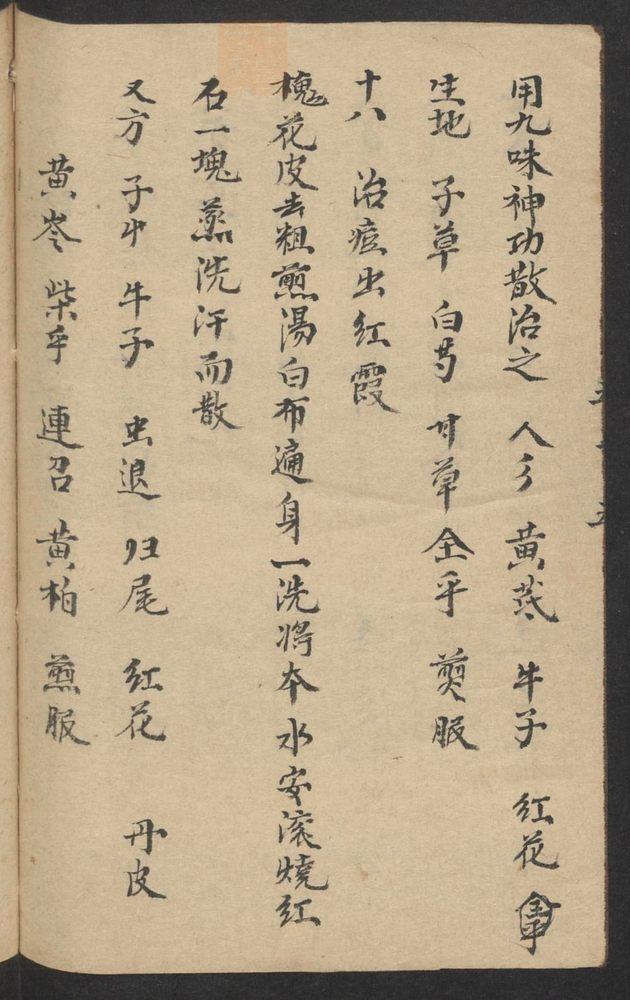 用九味神功散治之 人彡 黄茋 牛子 红花
生地 子草 白芍 甘草 全乎 煎服
十八 治痘出红霞
槐花皮去粗煎湯白布遍身一洗将本水安滚燒红
石一塊蒸洗汗而散
又方 子中 牛子 虫退 归尾 红花 丹皮
黄岑 柴乎 連召 黄柏 煎服